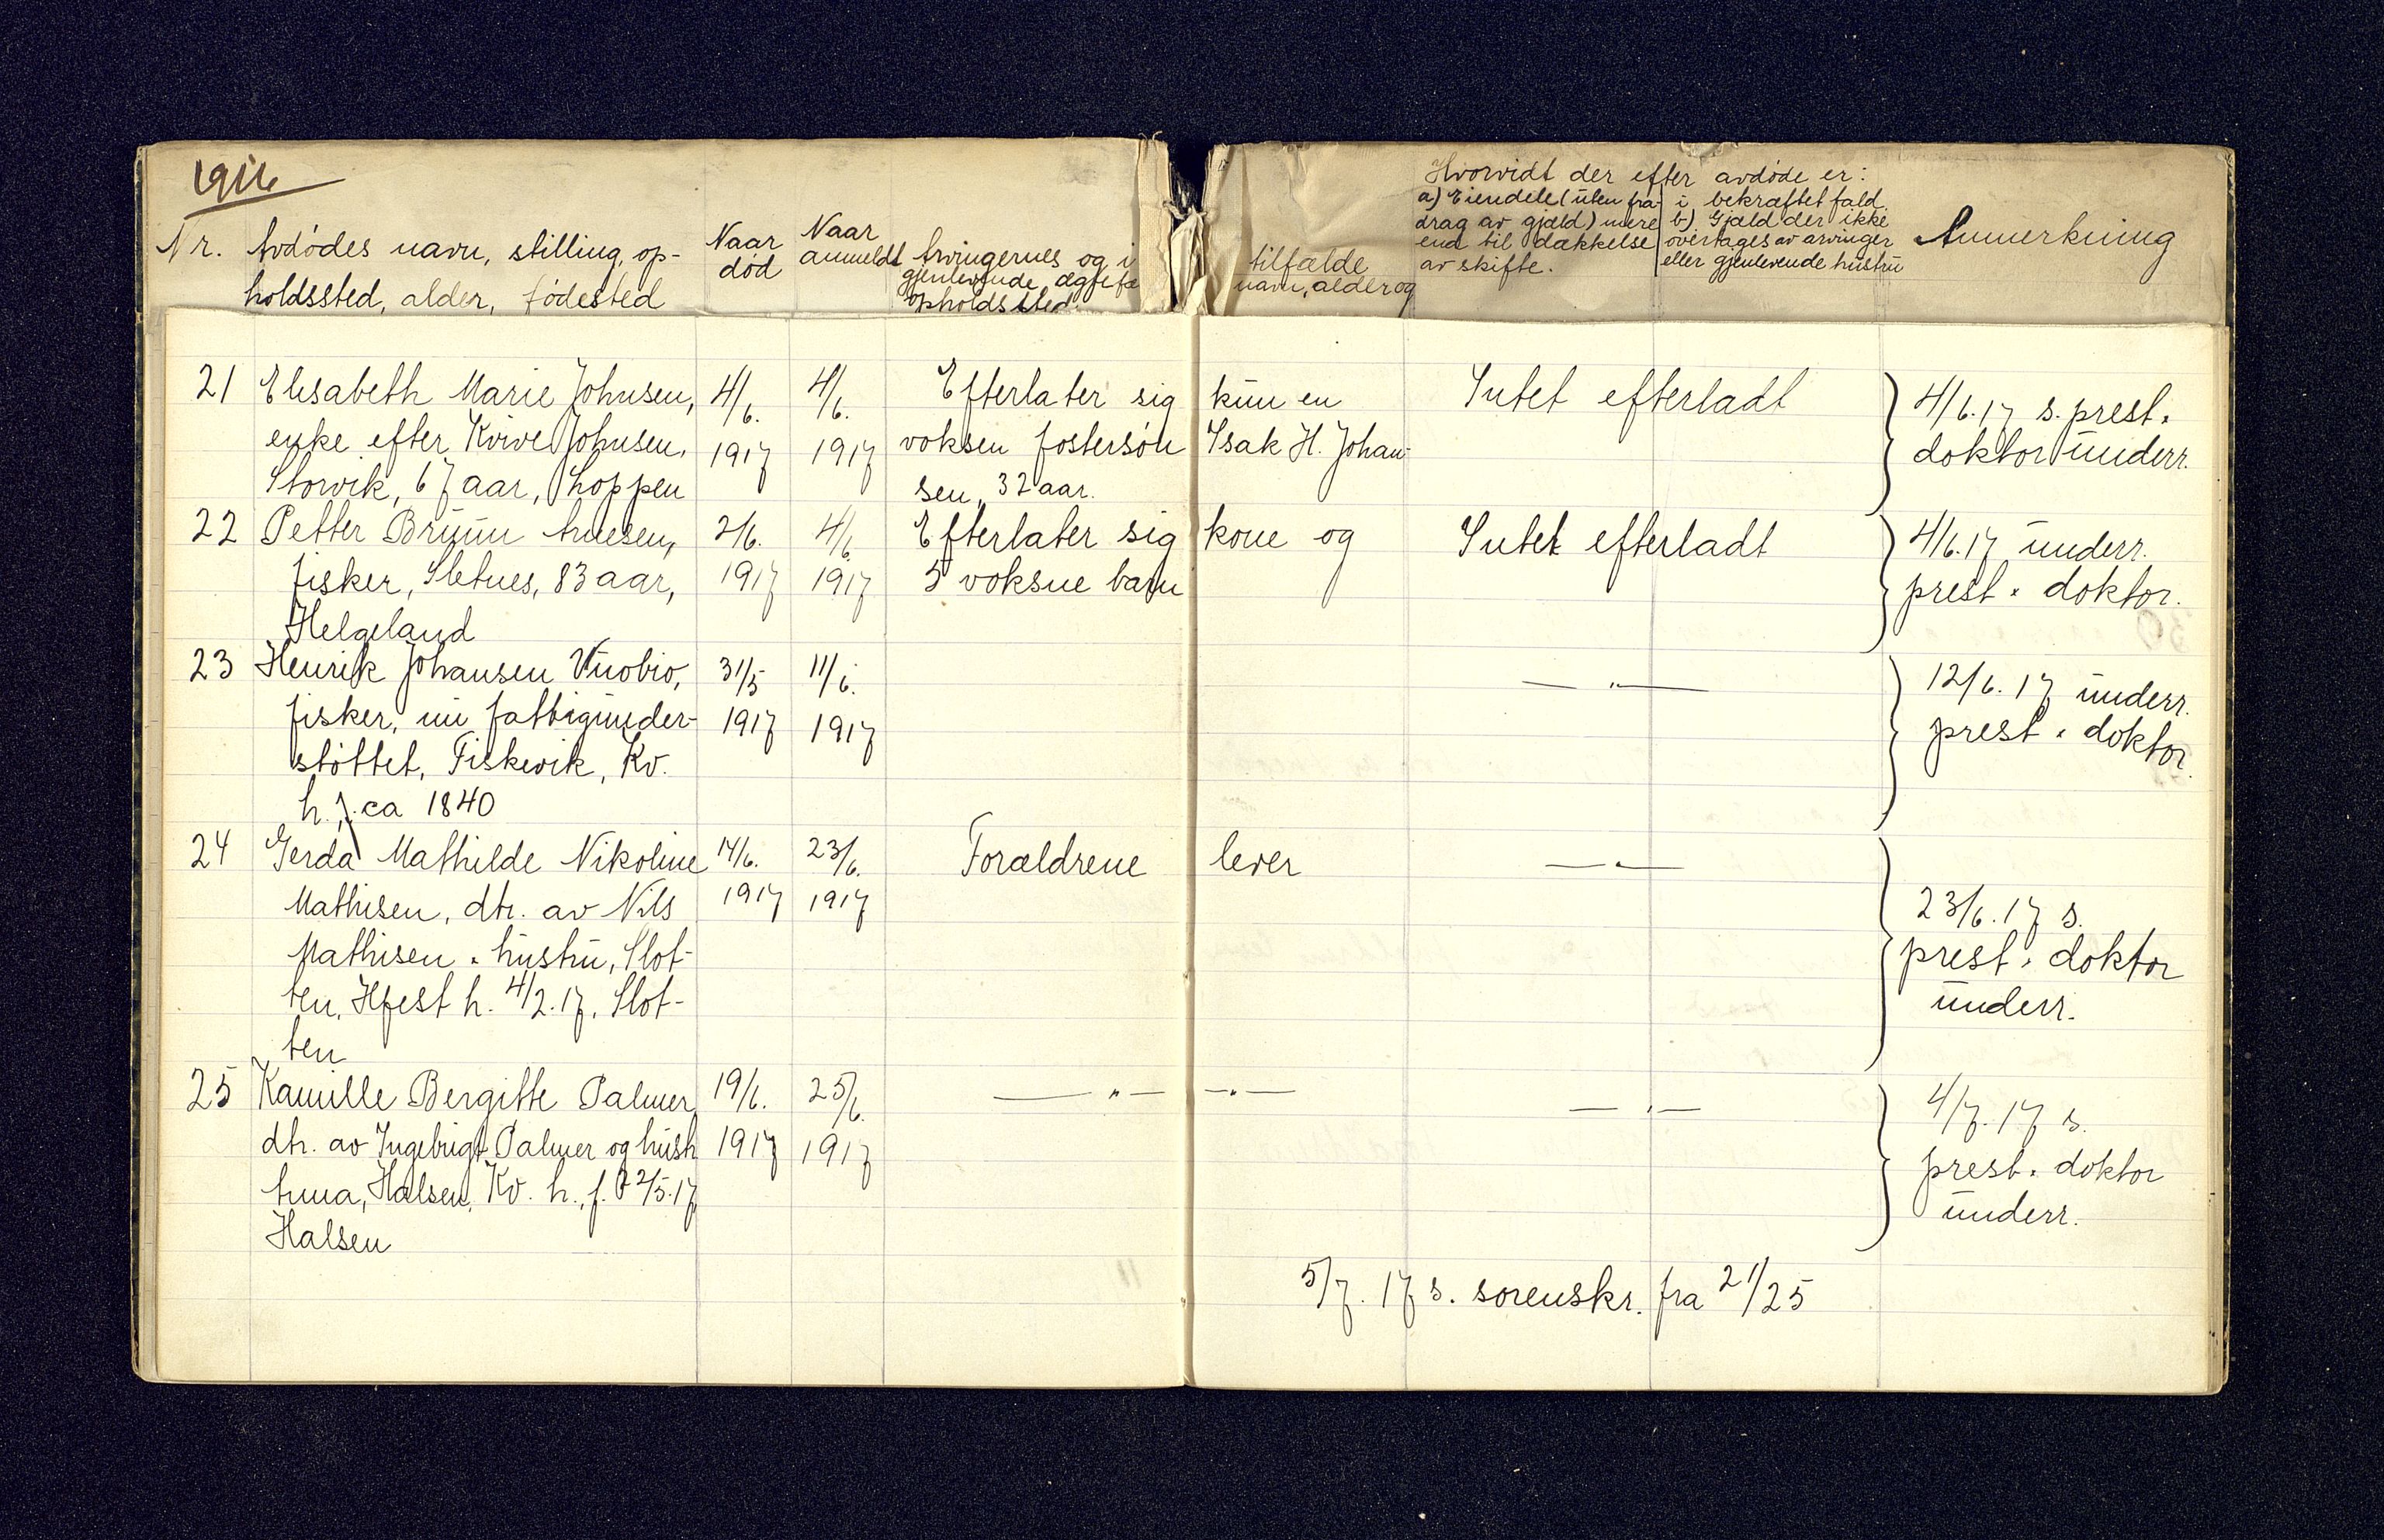 1916
Nr. Avdødes navn, stilling, op-
holdssted, alder, fødested
Naar
død
Naar
anmeldt
Arvingernes og i tilfælde
gjenlevende ægtefæ navn, alder og
opholdssted
Hvorvidt der efter avdøde er:
a) Eiendele (uten fra-
drag av gjæld) mere
end til dækkelse
av skifte.
i bekræftet fald
b) Gjæld der ikke
overtages av arvinger
eller gjenlevende hustru
Anmerkning
21 Elisabeth Marie Johnsen, 4/6. 4/6. Efterlater sig kun en Intet efterladt 4/6.17 s. prest.
enke efter Kvive Johnsen, 1917 1917 voksen fostersøn Isak H. Johan- doktor underr.
Storvik, 67 aar, Loppen sen, 32 aar.
22 Petter Bruun Arnesen, 2/6. 4/6 Efterlater sig kone og Intet efterladt 4/6.17 underr.
fisker, Sletnes, 83 aar, 1917 1917 5 voksne barn prest. doktor.
Helgeland
23 Henrik Johansen Vuobio, 31/5 11/6. — " — 12/6.17 underr.
fisker, nu fattigunder- 1917 1917 prest. doktor.
støttet, Fiskevik, Kv.
h., f. ca 1840
24 Gerda Mathilde Nikoline 14/6. 23/6. Forældrene lever — " —
Mathisen, dtr. av Nils 1917 1917 23/6.17 s.
Mathisen . hustru, Slot- prest. doktor
ten, Hfest h. 4/2.17, Slot- underr.
ten
25 Kamille Bergitte Palmer, 19/6. 25/6. — " — — " — — " — 4/7.17 s.
dtr. av Ingebrigt Palmer og hustr 1917 1917 prest. doktor
Anna, Halsen, Kv. h., f. 22/5.17 underr.
Halsen
5/7.17 s. sorenskr. fra 21/25